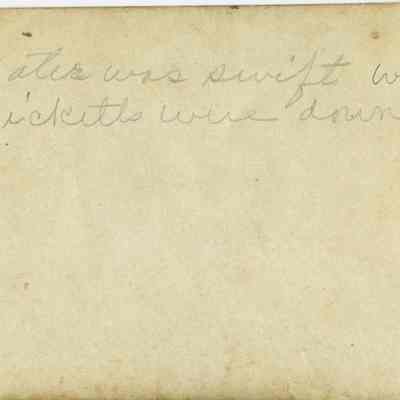 ater was swift w
icketts were down